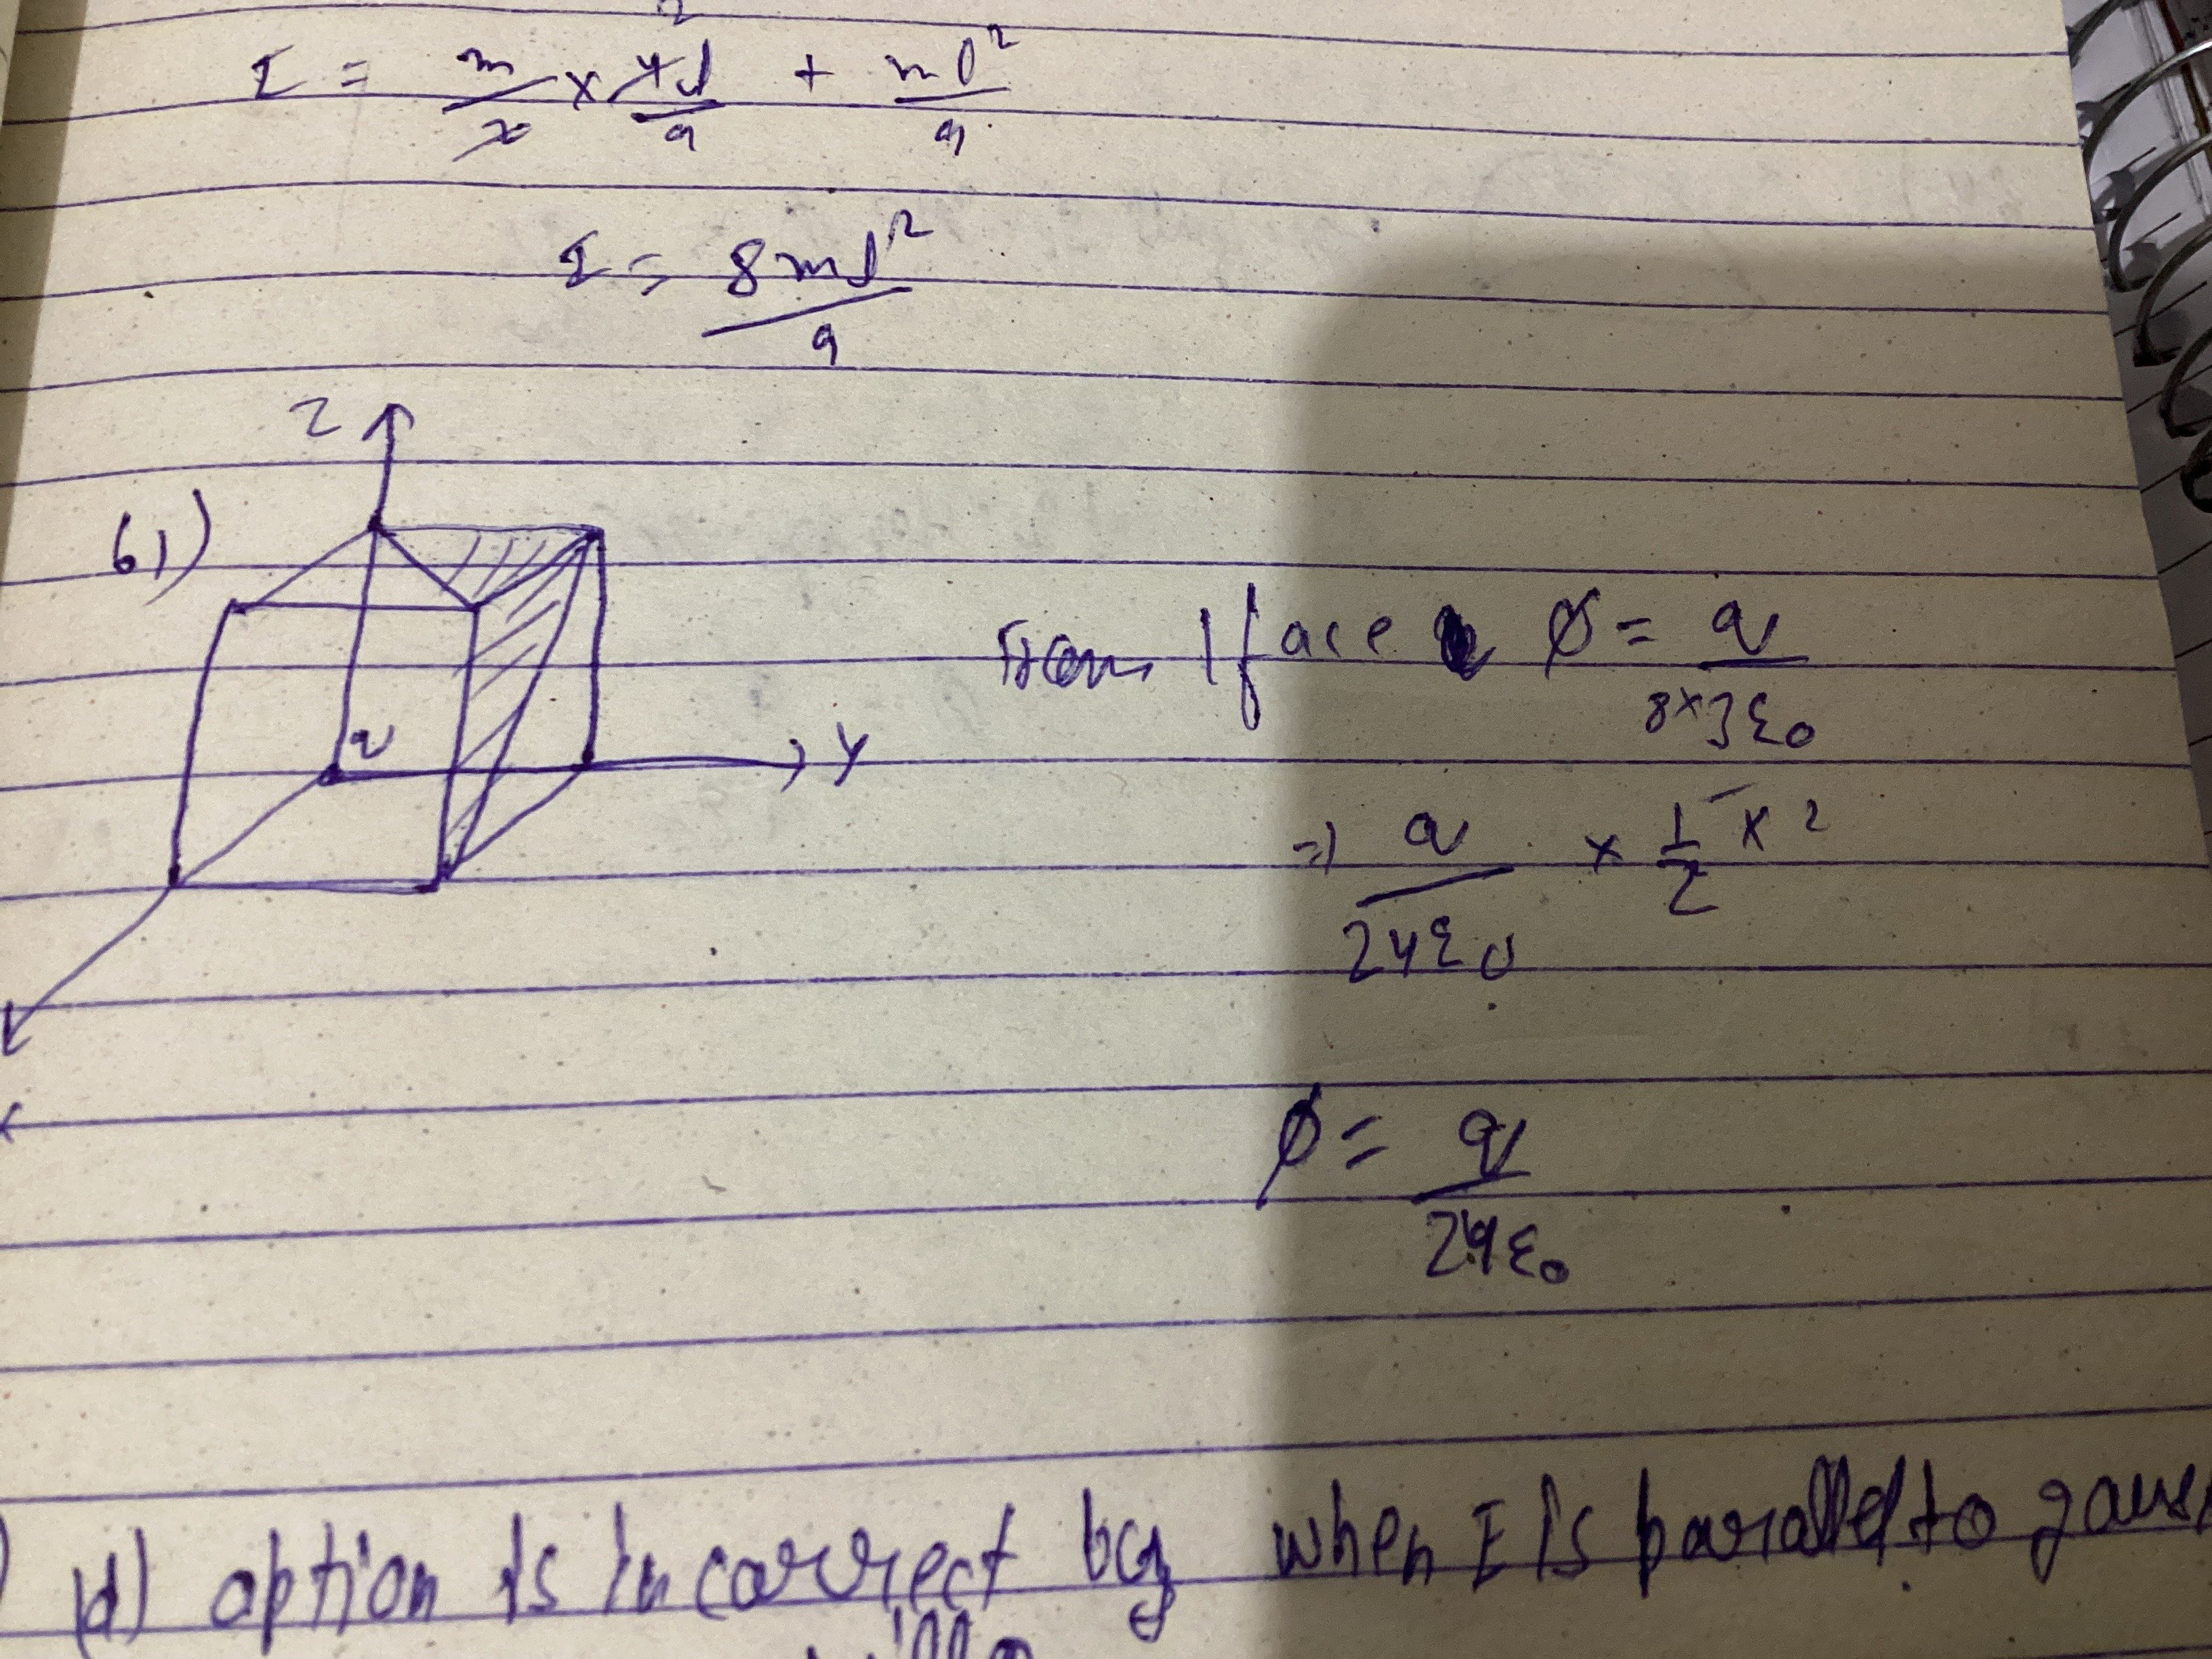 I = m/2 × 4l/9 + ml²/9
I = 8ml²/9
Z
61)
q
Y
from 1 face φ = q/8×3ε₀
=) q/24ε₀ × 1/2 × 2
φ = q/24ε₀
(d) option is incorrect bcz when E is parallel to gauss